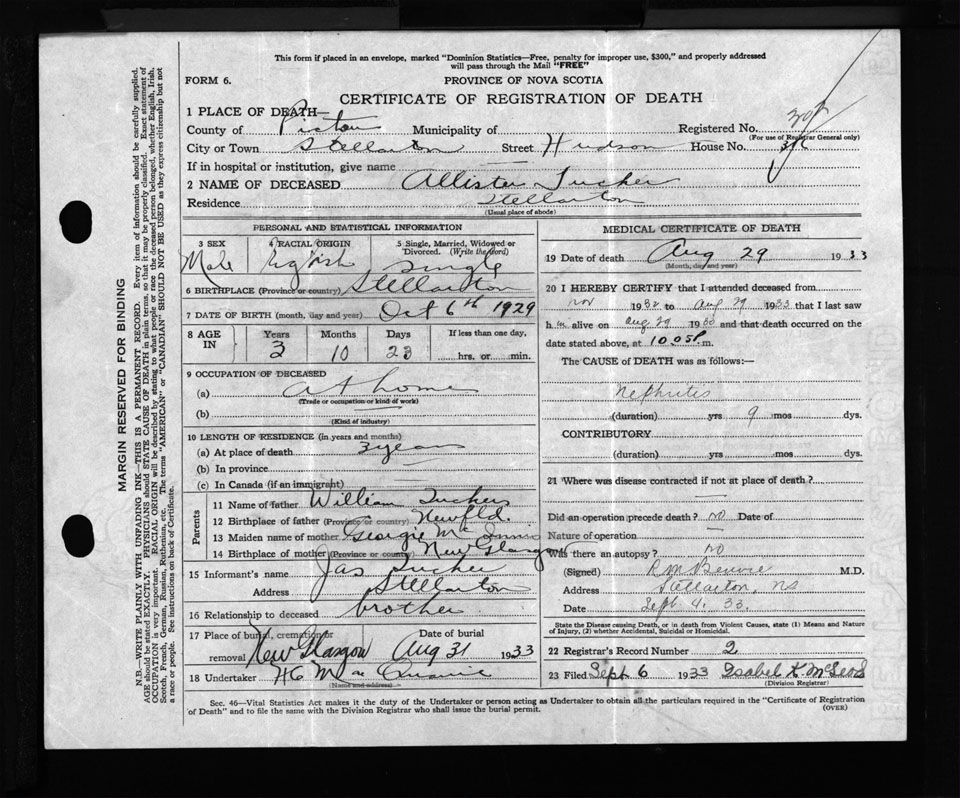 This form if placed in an envelope, marked "Dominion Statistics—Free, penalty for improper use, $300," and properly addressed
will pass through the Mail "FREE"
FORM 6. PROVINCE OF NOVA SCOTIA
CERTIFICATE OF REGISTRATION OF DEATH
1 PLACE OF DEATH—
County of Pictou Municipality of Registered No.
(For use of Registrar General only)
City or Town Stellarton Street Hudson House No. 316
If in hospital or institution, give name —
2 NAME OF DECEASED Allister Tucker
Residence Stellarton
(Usual place of abode)
PERSONAL AND STATISTICAL INFORMATION
3 SEX Male
4 RACIAL ORIGIN English
5 Single, Married, Widowed or Divorced. (Write the word) Single
6 BIRTHPLACE (Province or country) Stellarton
7 DATE OF BIRTH (month, day and year) Oct 6th 1929
8 AGE IN Years Months Days If less than one day,
3 10 23 hrs. or min.
9 OCCUPATION OF DECEASED
(a) at home
(Trade or occupation or kind of work)
(b) —
(Kind of industry)
10 LENGTH OF RESIDENCE (in years and months)
(a) At place of death 3 years
(b) In province —
(c) In Canada (if an immigrant)
Parents
11 Name of father William Tucker
12 Birthplace of father (Province or country) Newfld.
13 Maiden name of mother Georgie McInnis
14 Birthplace of mother (Province or country) New Glasgow
15 Informant's name Jas Tucker
Address Stellarton
16 Relationship to deceased brother
17 Place of burial, cremation or Date of burial
removal New Glasgow Aug 31 1933
18 Undertaker H C
(Name and address)
MEDICAL CERTIFICATE OF DEATH
19 Date of death Aug 29 1933
(Month, day and year)
20 I HEREBY CERTIFY that I attended deceased from
Nov 1932 to Aug 29 1933 that I last saw
h im alive on Aug 29 1933 and that death occurred on the
date stated above, at 10.05 P.m.
The CAUSE OF DEATH was as follows:—
Nephritis
(duration) yrs 9 mos dys.
CONTRIBUTORY
(duration) yrs mos dys.
21 Where was disease contracted if not at place of death? —
Did an operation precede death? no Date of
Nature of operation —
Was there an autopsy? no
(Signed) R M Benvie M.D.
Address Stellarton, NS
Date Sept 4. 33.
State the Disease causing Death, or in death from Violent Causes, state (1) Means and Nature
of Injury, (2) whether Accidental, Suicidal or Homicidal.
22 Registrar's Record Number 2
23 Filed Sept 6 1933 Isabel K. McLeod
(Division Registrar)
Sec. 46—Vital Statistics Act makes it the duty of the Undertaker or person acting as Undertaker to obtain all the particulars required in the "Certificate of Registration
of Death" and to file the same with the Division Registrar who shall issue the burial permit. (OVER)
MARGIN RESERVED FOR BINDING
N.B.—WRITE PLAINLY WITH UNFADING INK—THIS IS A PERMANENT RECORD. Every item of information should be carefully supplied.
AGE should be stated EXACTLY. PHYSICIANS should STATE CAUSE OF DEATH in plain terms, so that it may be properly classified. Exact statement of
OCCUPATION is very important. RACIAL ORIGIN will be described by stating to what people or race the deceased person belonged, whether English, Irish,
Scotch, French, German, Russian, Ruthenian, etc. The terms "AMERICAN" or "CANADIAN" SHOULD NOT BE USED as they express citizenship but not
a race or people. See instructions on back of Certificate.